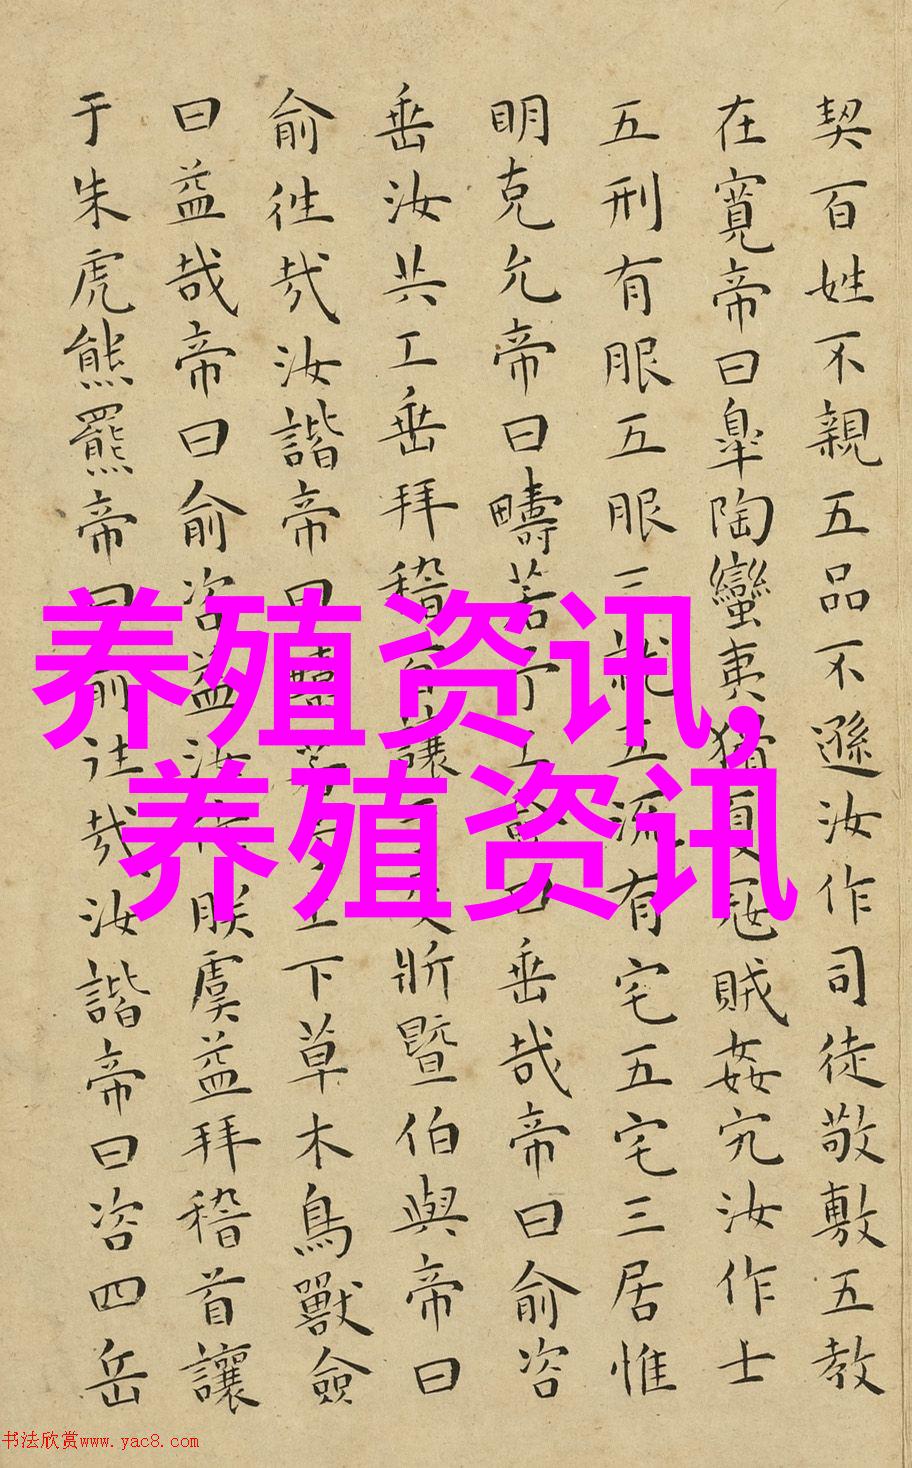 契百姓不親五品不遜汝作司徒敬敷五教
在寬帝曰臯陶蠻夷猾夏冦賊姦宄汝作士
五刑有服五服三就五流有宅五宅三居惟
明克允帝曰疇若予工僉曰垂哉帝曰俞咨
垂汝共工垂拜稽首讓于殳斨暨伯與帝曰
俞徃哉汝諧帝曰疇若予上下草木鳥獸僉
曰益哉帝曰俞咨益汝作朕虞益拜稽首讓
于朱虎熊羆帝曰俞往哉汝諧帝曰咨四岳
养殖资讯,
养殖资讯
书法欣赏www.yac8.com